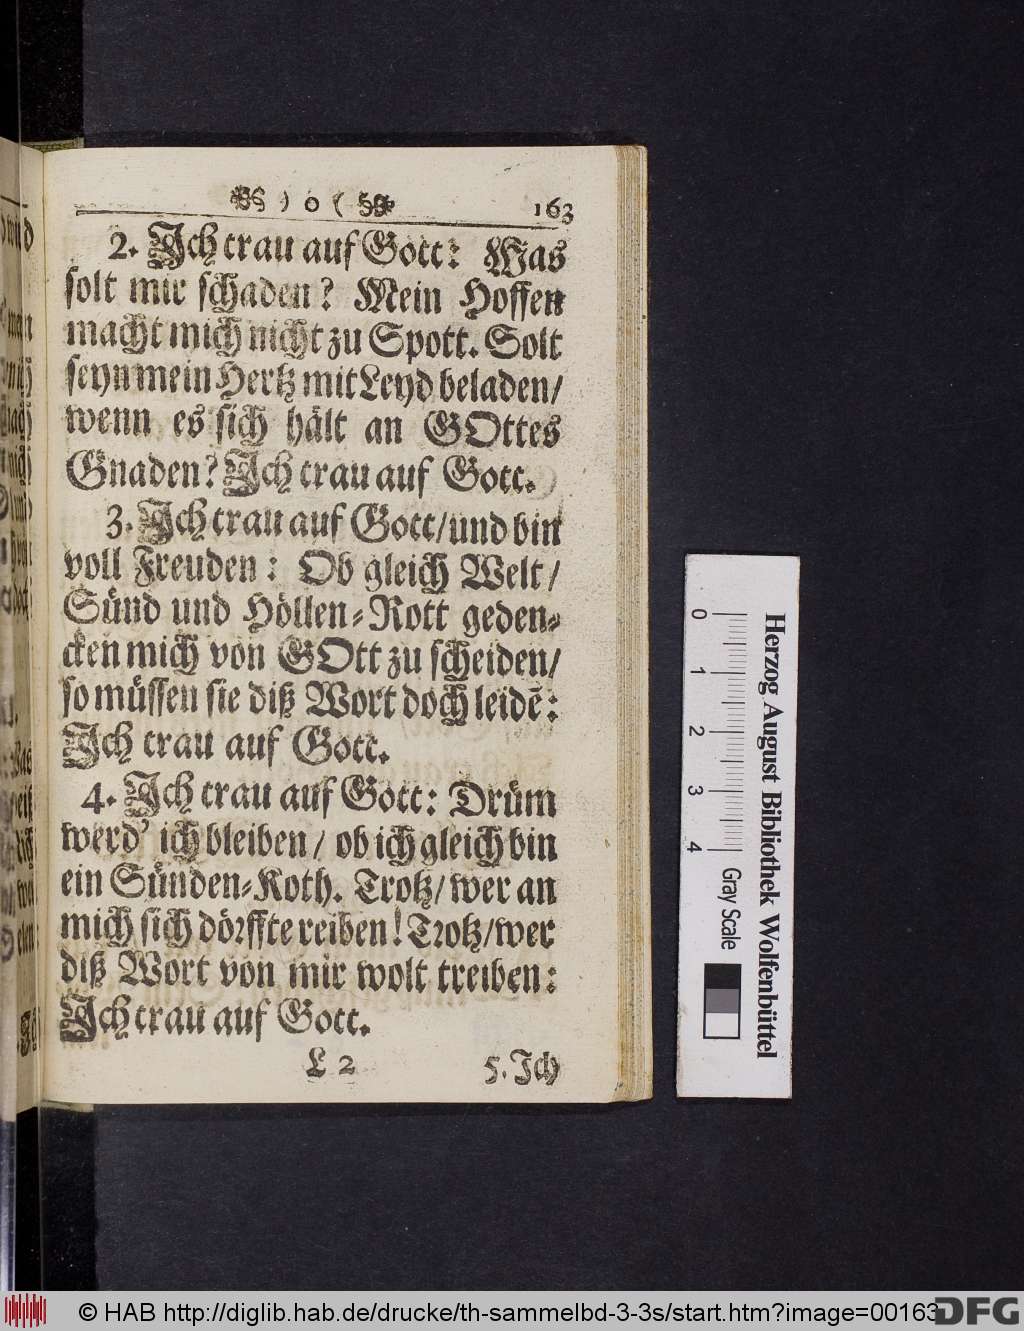 ) o (
163
2. Ich trau auf Gott: Was
solt mir schaden? Mein Hoffen
macht mich nicht zu Spott. Solt
seyn mein Hertz mit Leyd beladen/
wenn es sich hält an GOttes
Gnaden? Ich trau auf Gott.
3. Ich trau auf Gott/und bin
voll Freuden: Ob gleich Welt/
Sünd und Höllen-Rott geden-
cken mich von GOtt zu scheiden/
so müssen sie diß Wort doch leidē:
Ich trau auf Gott.
4. Ich trau auf Gott: Drüm
werd' ich bleiben/ ob ich gleich bin
ein Sünden-Koth. Trotz/wer an
mich sich dörffte reiben! Trotz/wer
diß Wort von mir wolt treiben:
Ich trau auf Gott.
L 2
5. Ich
0 1 2 3 4
Gray Scale
Herzog August Bibliothek Wolfenbüttel
© HAB http://diglib.hab.de/drucke/th-sammelbd-3-3s/start.htm?image=00163
DFG